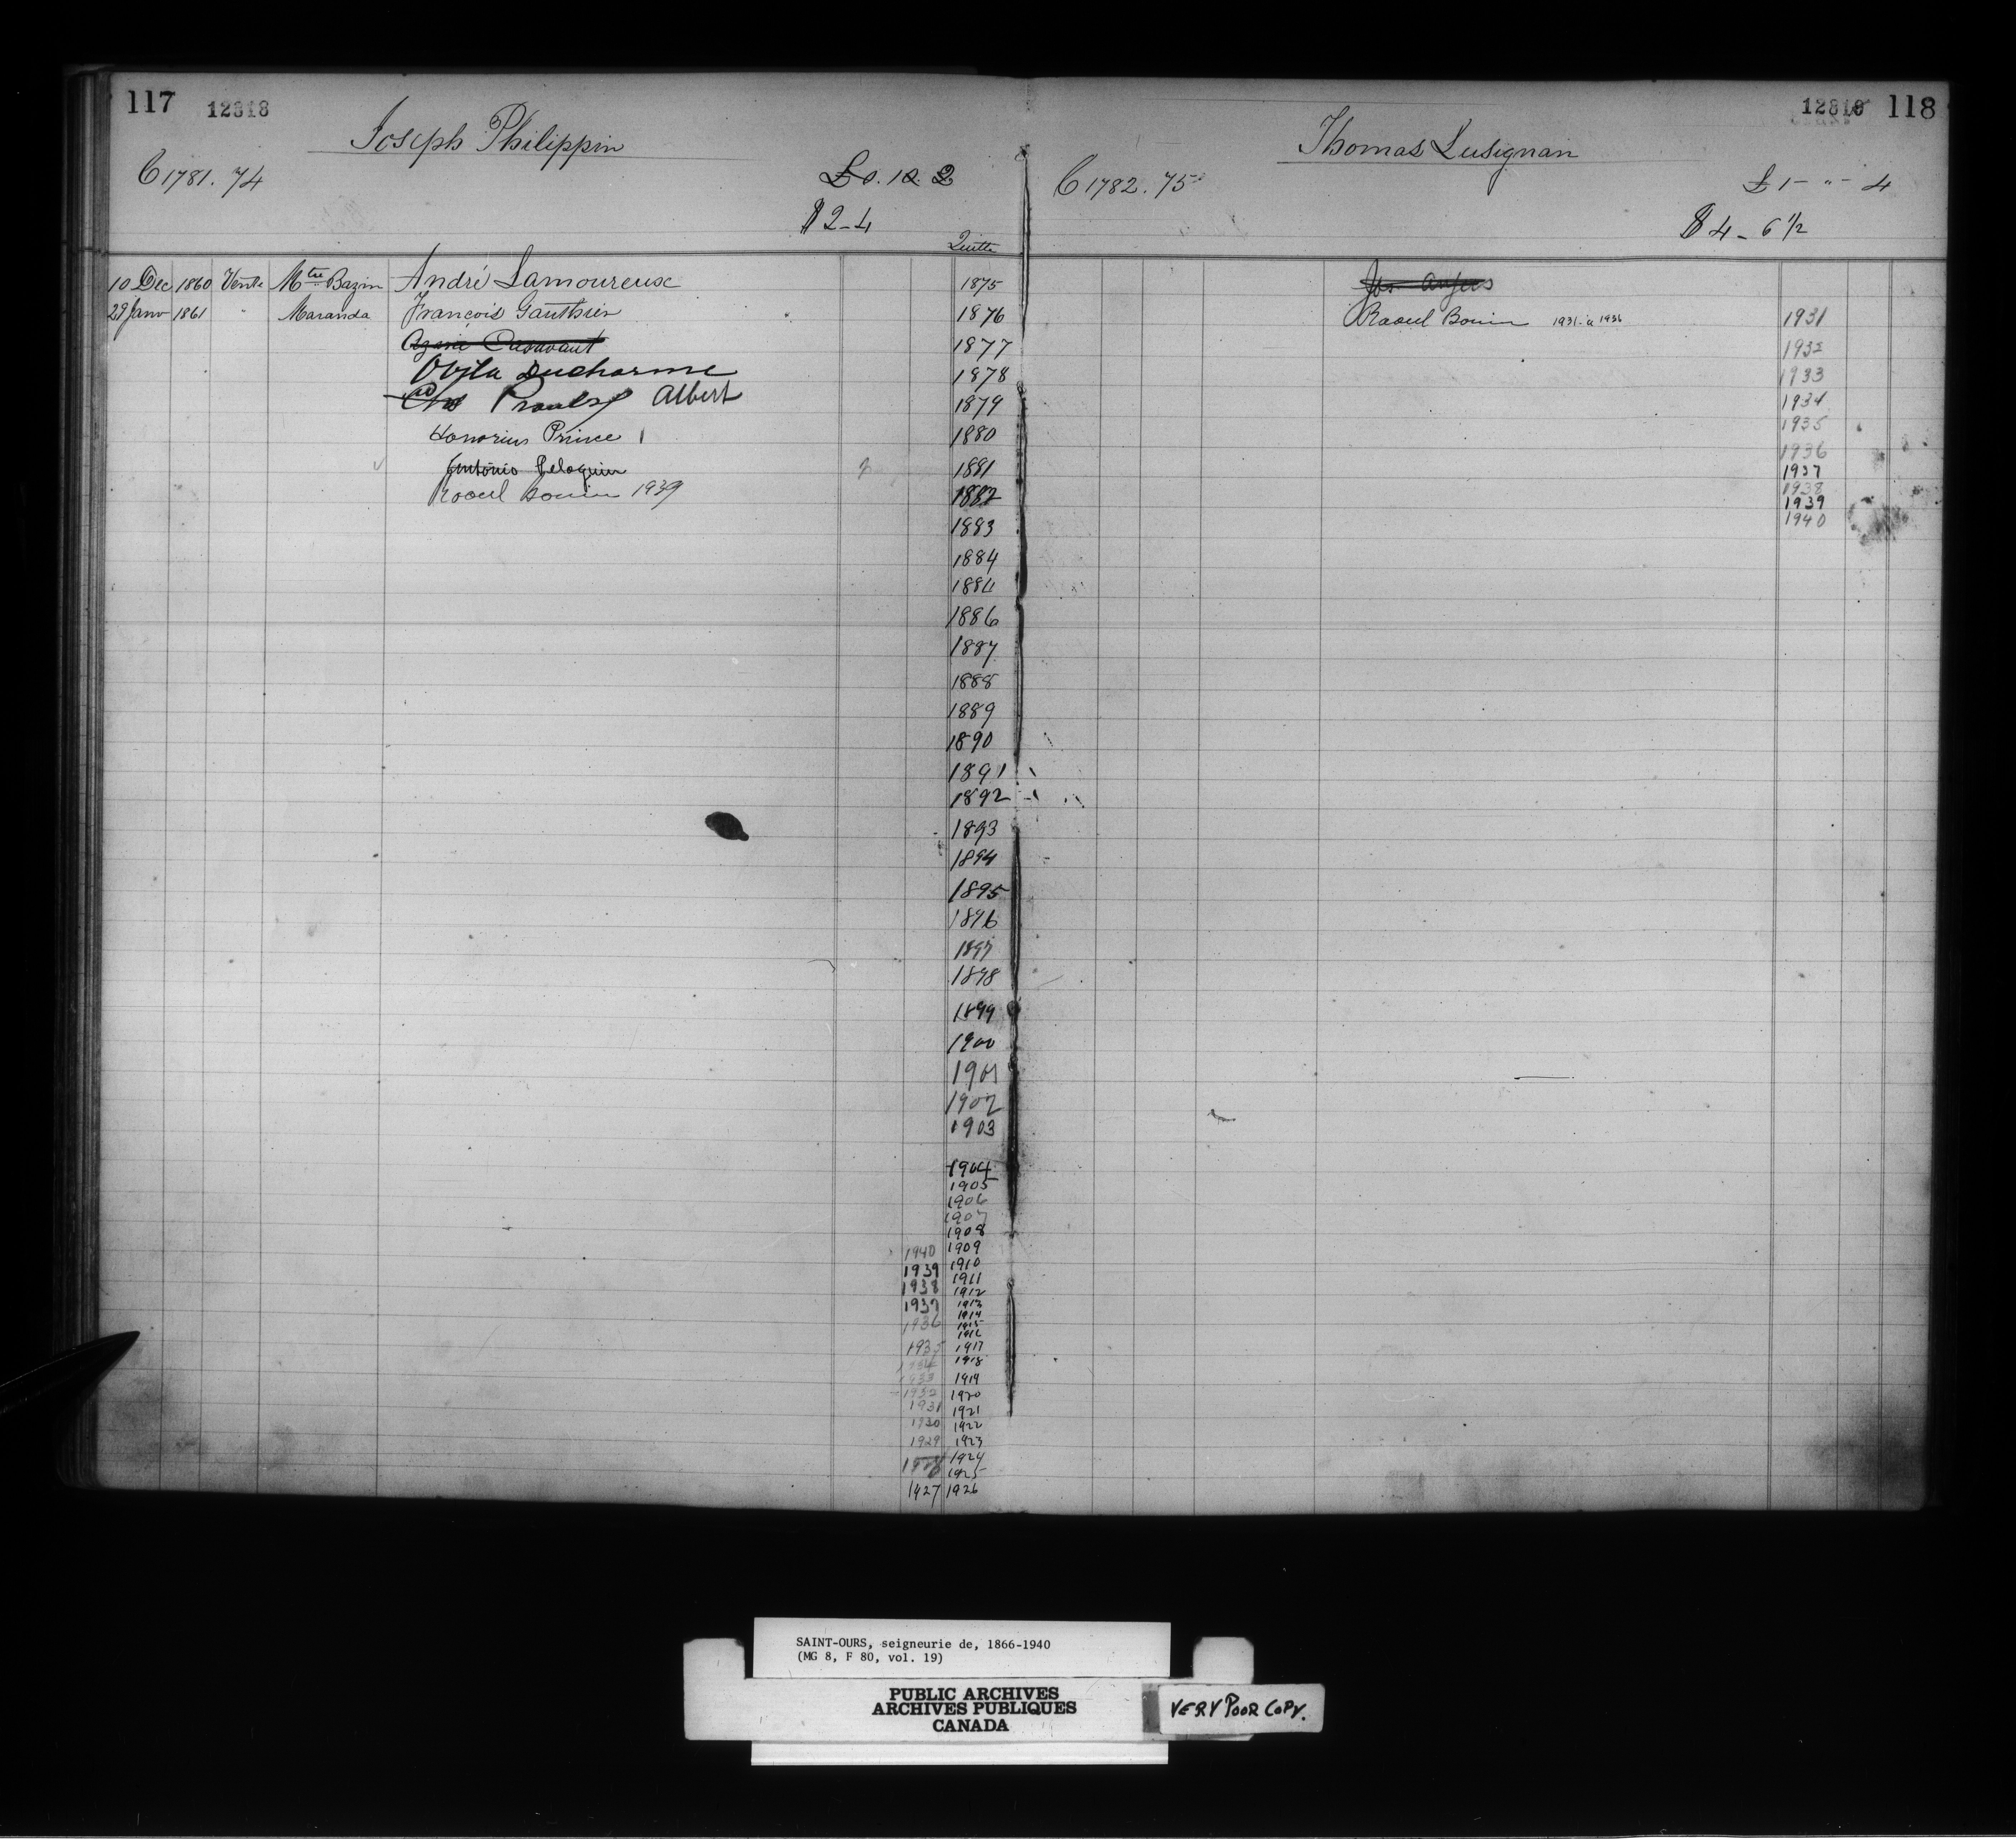 117 12818
Joseph Philippin
C 1781. 74
£0. 10. 2
$2-4
Quitte
10 Dec 1860 Vente Mtre Bazin André Lamoureux
29 Janv 1861 " Maranda François Gauthier
Ovila Ducharme
Proulx Albert
Honorius Prince
Antonio Peloquin
Raoul Bouin 1939
1875
1876
1877
1878
1879
1880
1881
1882
1883
1884
1884
1886
1887
1888
1889
1890
1891
1892
1893
1894
1895
1896
1897
1898
1899
1900
1901
1902
1903
1904
1905
1906
1907
1908
1940 1909
1939 1910
1938 1911
1937 1912
1936 1913
1914
1915
1916
1935 1917
1934 1918
1933 1919
1932 1920
1931 1921
1930 1922
1929 1923
1928 1924
1925
1927 1926
12819 118
Thomas Lusignan
C 1782. 75
£1 - " - 4
$4 - 6 1/2
Raoul Bouin 1931 à 1936
1931
1932
1933
1934
1935
1936
1937
1938
1939
1940
SAINT-OURS, seigneurie de, 1866-1940
(MG 8, F 80, vol. 19)
PUBLIC ARCHIVES
ARCHIVES PUBLIQUES
CANADA
VERY POOR COPY.